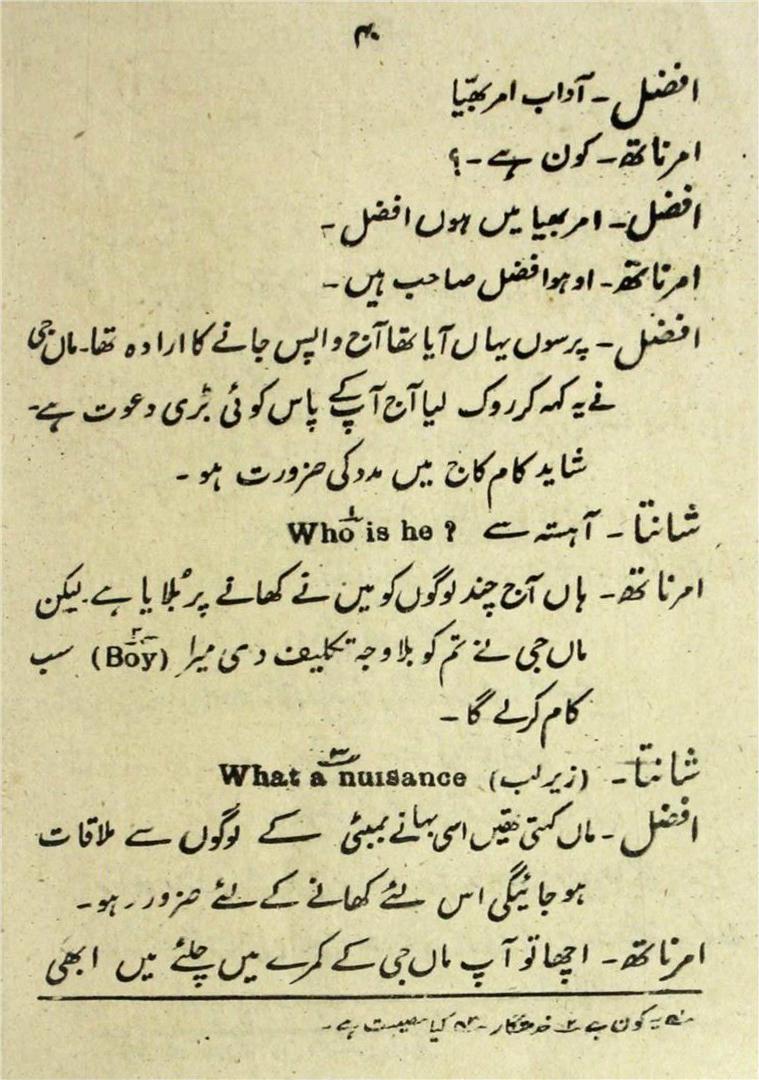 ۴۰
افضل ـ آداب امر بھیّا
امرناتھ ـ کون ہے ـ ؟
افضل ـ امر بھیا میں ہوں افضل ـ
امرناتھ ـ اوہو افضل صاحب ہیں ـ
افضل ـ پرسوں یہاں آیا تھا آج واپس جانے کا ارادہ تھا ـ ماں جی
نے یہ کہہ کر روک لیا آج آپ کے پاس کوئی بڑی دعوت ہے ـ
شاید کام کاج میں مدد کی ضرورت ہو ـ
شانتا ـ آہستہ سے Who is he ?۱
امرناتھ ـ ہاں آج چند لوگوں کو میں نے کھانے پر بُلایا ہے ـ لیکن
ماں جی نے تم کو بلا وجہ تکلیف دی میرا (Boy)۲ سب
کام کرلے گا ـ
شانتا ـ (زیر لب) What a nuisance۳
افضل ـ ماں کہتی تھیں اسی بہانے بمبئی کے لوگوں سے ملاقات
ہو جائیگی اس لئے کھانے کے لئے ضرور رہو ـ
امرناتھ ـ اچھا تو آپ ماں جی کے کمرے میں چلئے میں ابھی
۱ یہ کون ہے ۲ خدمتگار ـ ۳ کیا مصیبت ہے ـ